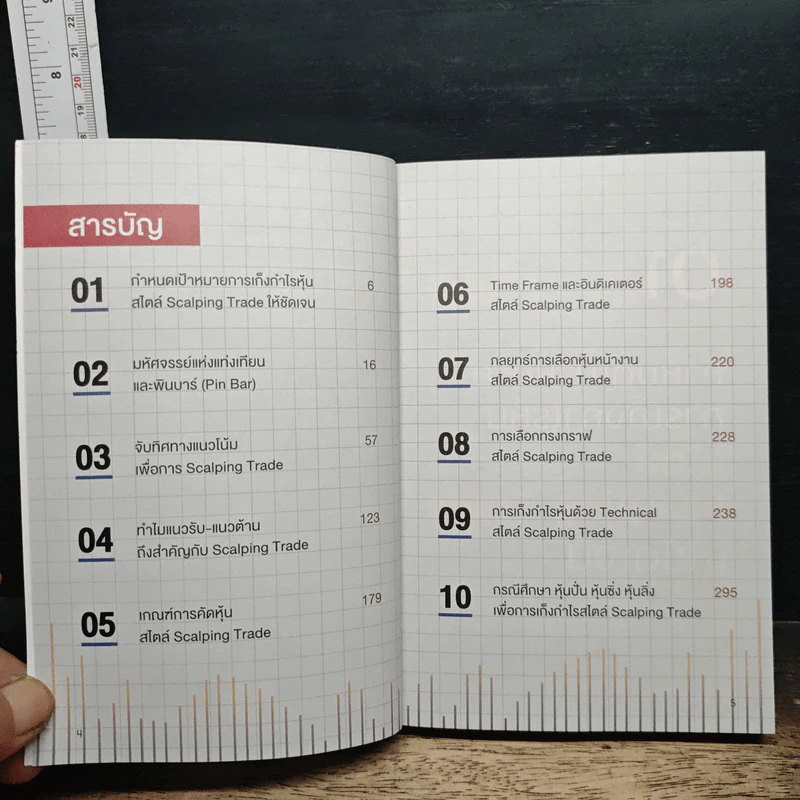 สารบัญ
01
กำหนดเป้าหมายการเก็งกำไรหุ้น
สไตล์ Scalping Trade ให้ชัดเจน
6
02
มหัศจรรย์แห่งแท่งเทียน
และพินบาร์ (Pin Bar)
16
03
จับทิศทางแนวโน้ม
เพื่อการ Scalping Trade
57
04
ทำไมแนวรับ-แนวต้าน
ถึงสำคัญกับ Scalping Trade
123
05
เกณฑ์การคัดหุ้น
สไตล์ Scalping Trade
179
4
06
Time Frame และอินดิเคเตอร์
สไตล์ Scalping Trade
198
07
กลยุทธ์การเลือกหุ้นหน้างาน
สไตล์ Scalping Trade
220
08
การเลือกทรงกราฟ
สไตล์ Scalping Trade
228
09
การเก็งกำไรหุ้นด้วย Technical
สไตล์ Scalping Trade
238
10
กรณีศึกษา หุ้นปั่น หุ้นซิ่ง หุ้นลิ่ง
เพื่อการเก็งกำไรสไตล์ Scalping Trade
295
5
8
22
21
20
19